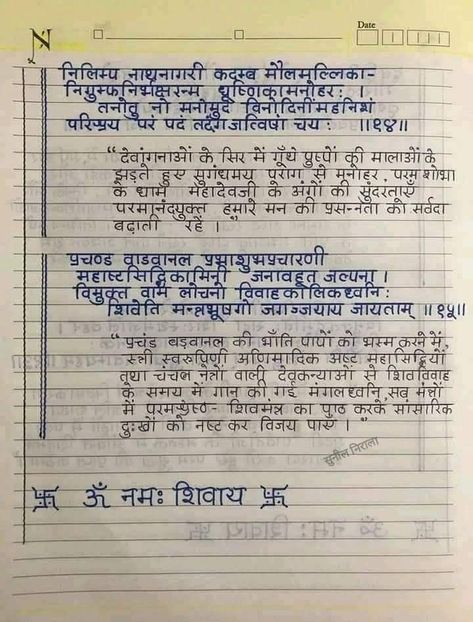 N
Date
निलिम्प नाथनागरी कदम्ब मौलमल्लिका-
निगुम्फनिर्भक्षरन्म धूष्णिकामनोहरः ।
तनोतु नो मनोमुदं विनोदिनींमहनिशं
परिश्रय परं पदं तदंगजत्विषां चयः ॥१४॥
“देवांगनाओं के सिर में गूँथे पुष्पों की मालाओं के
झड़ते हुए सुगंधमय पराग से मनोहर, परम शोभा
के धाम महादेवजी के अंगों की सुंदरताएँ
परमानंदयुक्त हमारे मन की प्रसन्नता को सर्वदा
बढ़ाती रहें ।
प्रचण्ड वाडवानल प्रभाशुभप्रचारणी
महाष्टसिद्धिकामिनी जनावहूत जल्पना ।
विमुक्त वाम लोचनो विवाहकालिकध्वनिः
शिवेति मन्त्रभूषगो जगज्जयाय जायताम् ॥१५॥
“प्रचंड बड़वानल की भाँति पापों को भस्म करने में,
स्त्री स्वरुपिणी अणिमादिक अष्ट महासिद्धियों
तथा चंचल नेत्रों वाली देवकन्याओं से शिवविवाह
के समय में गान की गई मंगलध्वनि सब मंत्रों
में परमश्रेष्ठ- शिवमंत्र का पुष्ठ करके सांसारिक
दुःखों को नष्ट कर विजय पाएँ ।”
सुनील निराला
卐 ॐ नमः शिवाय 卐